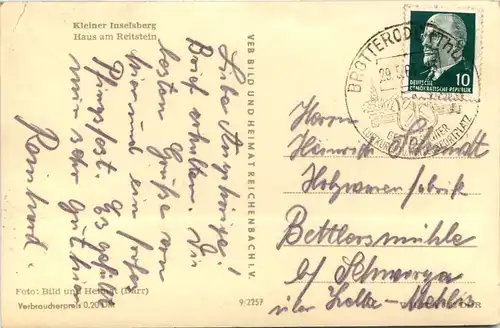 Kleiner Inselsberg
Haus am Reitstein
Liebe Angehörige!
Brief erhalten. Die
besten Grüße von
hier und ein frohes
Pfingstfest. Es gefällt
mir sehr gut hier
Reinhard.
VEB BILD UND HEIMAT REICHENBACH I. V.
Foto: Bild und Heimat (Darr)
Verbraucherpreis 0,20 DM
9/2257
BROTTERODE (Thür)
DEUTSCHE
DEMOKRATISCHE REPUBLIK
10
Herrn
Heinrich Schmidt
Holzwarenfabrik
Bettlersmühle
b/ Schwarza
über Zella-Mehlis